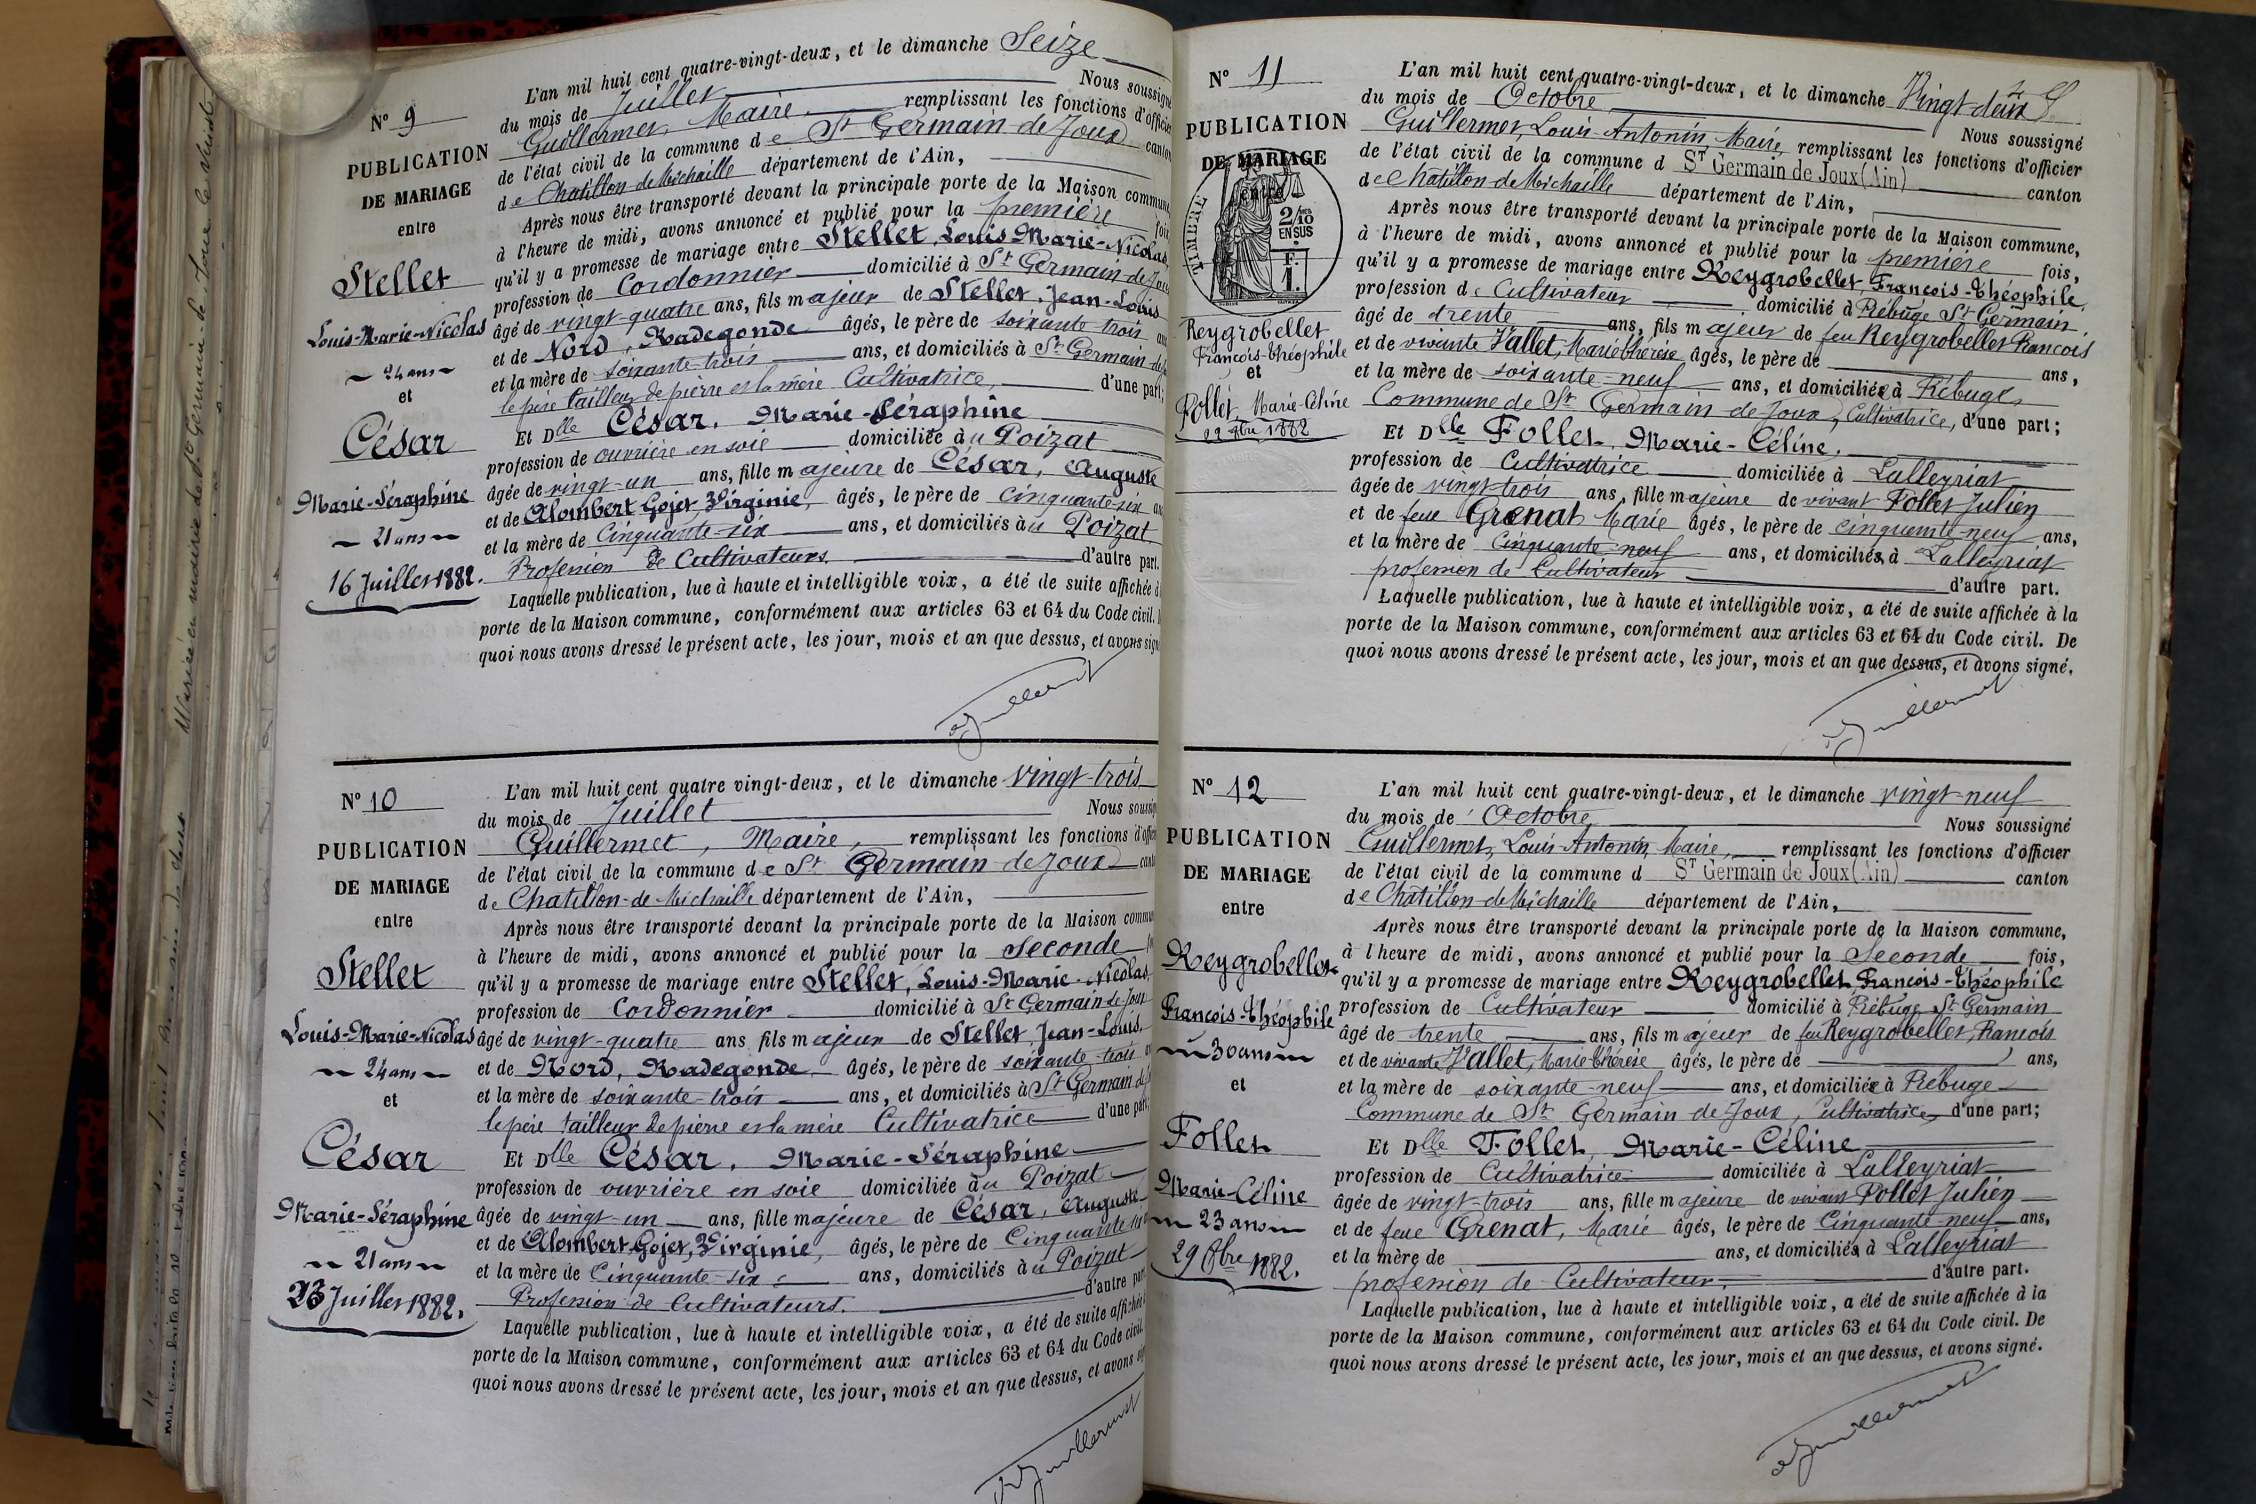 N° 9
PUBLICATION
DE MARIAGE
entre
Stellet
Louis-Marie-Nicolas
~ 24 ans ~
et
César
Marie-Séraphine
~ 21 ans ~
16 Juillet 1882.
L'an mil huit cent quatre-vingt-deux, et le dimanche Seize
du mois de Juillet Nous soussigné
Guillermet, Maire, remplissant les fonctions d'officier
de l'état civil de la commune de St Germain de Joux canton
de Chatillon de Michaille département de l'Ain,
Après nous être transporté devant la principale porte de la Maison commune,
à l'heure de midi, avons annoncé et publié pour la première fois
qu'il y a promesse de mariage entre Stellet, Louis-Marie-Nicolas,
profession de Cordonnier domicilié à St Germain de Joux
âgé de vingt-quatre ans, fils majeur de Stellet, Jean-Louis
et de Nord, Radegonde âgés, le père de soixante trois ans
et la mère de soixante-trois ans, et domiciliés à St Germain de
le père tailleur de pierre et la mère Cultivatrice, d'une part;
Et Dlle César, Marie-Séraphine
profession de ouvrière en soie domiciliée au Poizat
âgée de vingt-un ans, fille majeure de César, Auguste
et de Alombert Gojet, Virginie, âgés, le père de cinquante-six ans
et la mère de Cinquante-six ans, et domiciliés au Poizat
Profession de Cultivateurs. d'autre part.
Laquelle publication, lue à haute et intelligible voix, a été de suite affichée à
porte de la Maison commune, conformément aux articles 63 et 64 du Code civil.
quoi nous avons dressé le présent acte, les jour, mois et an que dessus, et avons signé
Guillermet
N° 10
PUBLICATION
DE MARIAGE
entre
Stellet
Louis-Marie-Nicolas
~ 24 ans ~
et
César
Marie-Séraphine
~ 21 ans ~
23 Juillet 1882.
L'an mil huit cent quatre vingt-deux, et le dimanche vingt-trois
du mois de Juillet Nous soussigné
Guillermet, Maire, remplissant les fonctions d'officier
de l'état civil de la commune de St Germain de Joux canton
de Chatillon-de-Michaille département de l'Ain,
Après nous être transporté devant la principale porte de la Maison commune
à l'heure de midi, avons annoncé et publié pour la Seconde
qu'il y a promesse de mariage entre Stellet, Louis-Marie-Nicolas,
profession de Cordonnier domicilié à St Germain de Joux
âgé de vingt-quatre ans fils majeur de Stellet, Jean-Louis,
et de Nord, Radegonde, âgés, le père de soixante-trois
et la mère de soixante-trois ans, et domiciliés à St Germain de
le père tailleur de pierre et la mère Cultivatrice d'une part;
Et Dlle César, Marie-Séraphine
profession de ouvrière en soie domiciliée au Poizat
âgée de vingt-un ans, fille majeure de César, Auguste
et de Alombert Gojet, Virginie, âgés, le père de Cinquante six
et la mère de Cinquante-six ans, domiciliés au Poizat
Profession de Cultivateurs. d'autre part
Laquelle publication, lue à haute et intelligible voix, a été de suite affichée
porte de la Maison commune, conformément aux articles 63 et 64 du Code civil.
quoi nous avons dressé le présent acte, les jour, mois et an que dessus, et avons
Guillermet
N° 11
PUBLICATION
DE MARIAGE
entre
TIMBRE
2/10
EN SUS
F.
1.
Reygrobellet
François-Théophile
et
Follet, Marie-Céline
22 8bre 1882
L'an mil huit cent quatre-vingt-deux, et le dimanche Vingt-deux
du mois de Octobre Nous soussigné
Guillermet, Louis-Antonin, Maire, remplissant les fonctions d'officier
de l'état civil de la commune d St Germain de Joux (Ain) canton
de Chatillon-de-Michaille département de l'Ain,
Après nous être transporté devant la principale porte de la Maison commune,
à l'heure de midi, avons annoncé et publié pour la première fois,
qu'il y a promesse de mariage entre Reygrobellet, François-Théophile,
profession de Cultivateur domicilié à Plébuge St Germain.
âgé de trente ans, fils majeur de feu Reygrobellet François
et de vivante Vallet, Marie Thérèse âgés, le père de ans,
et la mère de soixante-neuf ans, et domiciliée à Plébuge,
Commune de St Germain de Joux, Cultivatrice, d'une part;
Et Dlle Follet, Marie-Céline.
profession de Cultivatrice domiciliée à Lalleyriat
âgée de vingt-trois ans, fille majeure de vivant Follet Julien
et de feue Grenat Marie âgés, le père de cinquante-neuf ans,
et la mère de cinquante-neuf ans, et domiciliés, à Lalleyriat
profession de Cultivateur d'autre part.
Laquelle publication, lue à haute et intelligible voix, a été de suite affichée à la
porte de la Maison commune, conformément aux articles 63 et 64 du Code civil. De
quoi nous avons dressé le présent acte, les jour, mois et an que dessus, et avons signé.
Guillermet
N° 12
PUBLICATION
DE MARIAGE
entre
Reygrobellet
François-Théophile
~ 30 ans ~
et
Follet
Marie-Céline
~ 23 ans ~
29 8bre 1882.
L'an mil huit cent quatre-vingt-deux, et le dimanche vingt-neuf
du mois de Octobre Nous soussigné
Guillermet, Louis-Antonin, Maire, remplissant les fonctions d'officier
de l'état civil de la commune d St Germain de Joux (Ain) canton
de Chatillon-de-Michaille département de l'Ain,
Après nous être transporté devant la principale porte de la Maison commune,
à l'heure de midi, avons annoncé et publié pour la Seconde fois,
qu'il y a promesse de mariage entre Reygrobellet François-Théophile
profession de Cultivateur domicilié à Plébuge St Germain
âgé de trente ans, fils majeur de feu Reygrobellet, François
et de vivante Vallet, Marie-Thérèse âgés, le père de ans,
et la mère de soixante-neuf ans, et domiciliée à Plébuge
Commune de St Germain de Joux, Cultivatrice, d'une part;
Et Dlle Follet, Marie-Céline
profession de Cultivatrice domiciliée à Lalleyriat
âgée de vingt-trois ans, fille majeure de vivant Follet Julien
et de feue Grenat, Marie âgés, le père de Cinquante-neuf ans,
et la mère de ans, et domiciliés à Lalleyriat
profession de Cultivateur, d'autre part.
Laquelle publication, lue à haute et intelligible voix, a été de suite affichée à la
porte de la Maison commune, conformément aux articles 63 et 64 du Code civil. De
quoi nous avons dressé le présent acte, les jour, mois et an que dessus, et avons signé.
Guillermet